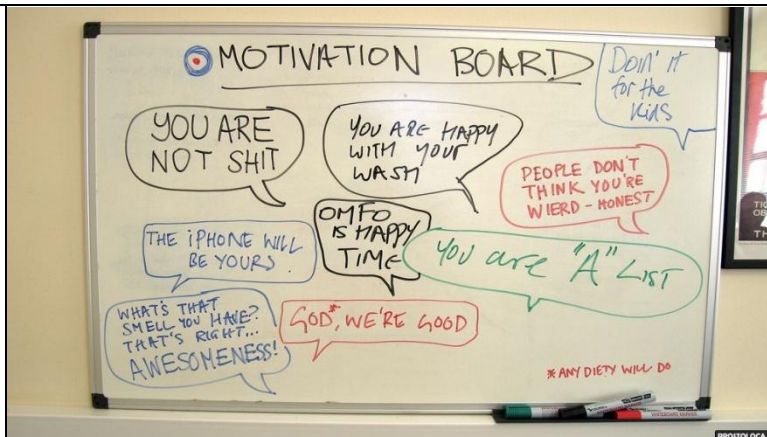 MOTIVATION BOARD
Doin' it
for the
Kids
YOU ARE
NOT SHIT
YOU ARE HAPPY
WITH YOUR
WASH
PEOPLE DON'T
THINK YOU'RE
WIERD - HONEST
OMFO
IS HAPPY
TIME
THE iPHONE WILL
BE YOURS.
YOU are "A" LIST
WHAT'S THAT
SMELL YOU HAVE?
THAT'S RIGHT...
AWESOMENESS!
GOD*, WE'RE GOOD
*ANY DIETY WILL DO
WHITEBOARD MARKER